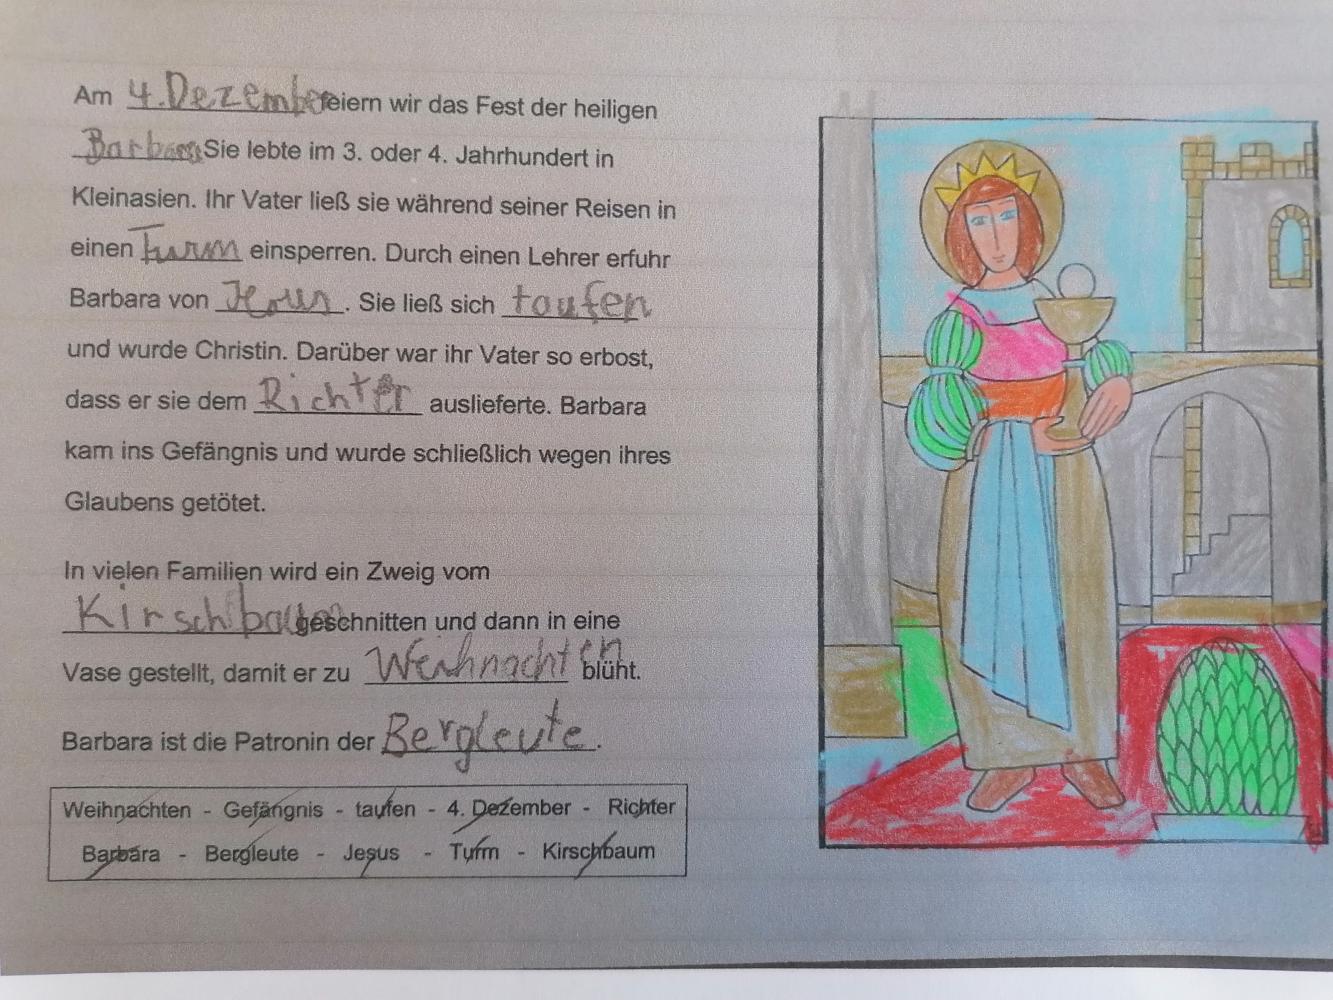 Am 4. Dezember feiern wir das Fest der heiligen
Barbara Sie lebte im 3. oder 4. Jahrhundert in
Kleinasien. Ihr Vater ließ sie während seiner Reisen in
einen Turm einsperren. Durch einen Lehrer erfuhr
Barbara von Jesus. Sie ließ sich taufen
und wurde Christin. Darüber war ihr Vater so erbost,
dass er sie dem Richter auslieferte. Barbara
kam ins Gefängnis und wurde schließlich wegen ihres
Glaubens getötet.
In vielen Familien wird ein Zweig vom
Kirschbaum geschnitten und dann in eine
Vase gestellt, damit er zu Weihnachten blüht.
Barbara ist die Patronin der Bergleute.
Weihnachten - Gefängnis - taufen - 4. Dezember - Richter
Barbara - Bergleute - Jesus - Turm - Kirschbaum